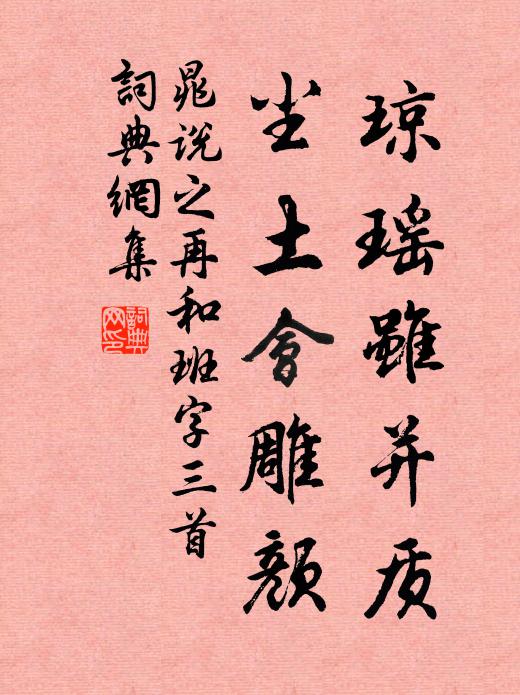 琼瑶雖并质
尘土會雕颜
晁说之再和班字三首
詞典網集
詞典网印